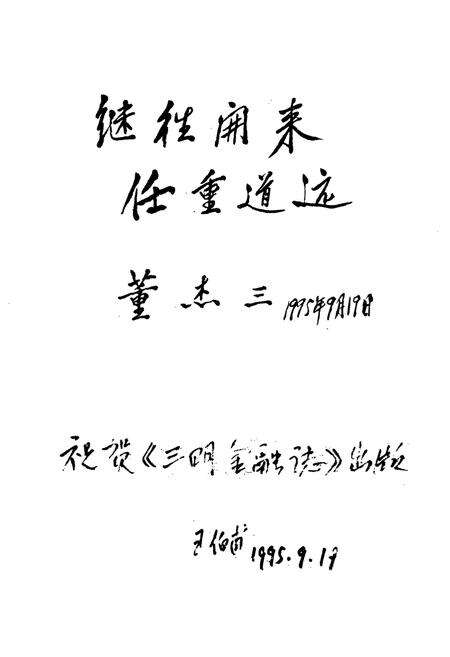 继往開来
任重道远
董杰三 1995年9月19日
祝贺《三明金融誌》出版
王伯甫 1995.9.19